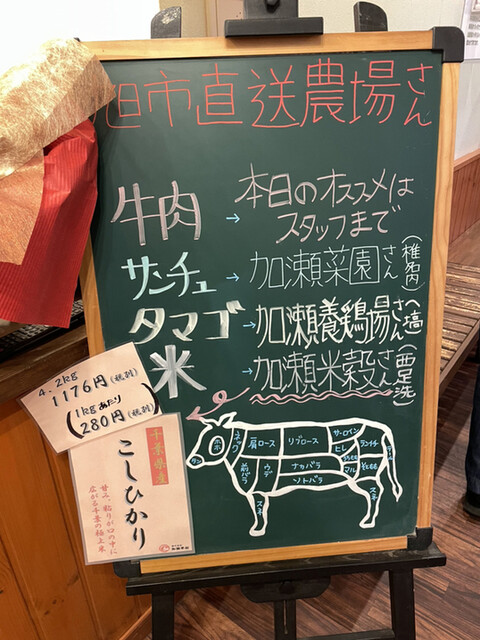 旭市直送農場さん
牛肉 → 本日のオススメは
スタッフまで
サンチュ → 加瀬菜園さん(椎名内)
タマゴ → 加瀬養鶏場さん(へ高)
米 → 加瀬米穀さん(西足洗)
4.2kg
1176円(税別)
(1kgあたり
280円(税別))
千葉県産
こしひかり
甘み、粘りが口の中に
広がる千葉の極上米
ネック
肩ロース
リブロース
サーロイン
ヒレ
ランイチ
タン
前バラ
ウデ
ナカバラ
ソトバラ
マル
スネ
スネ